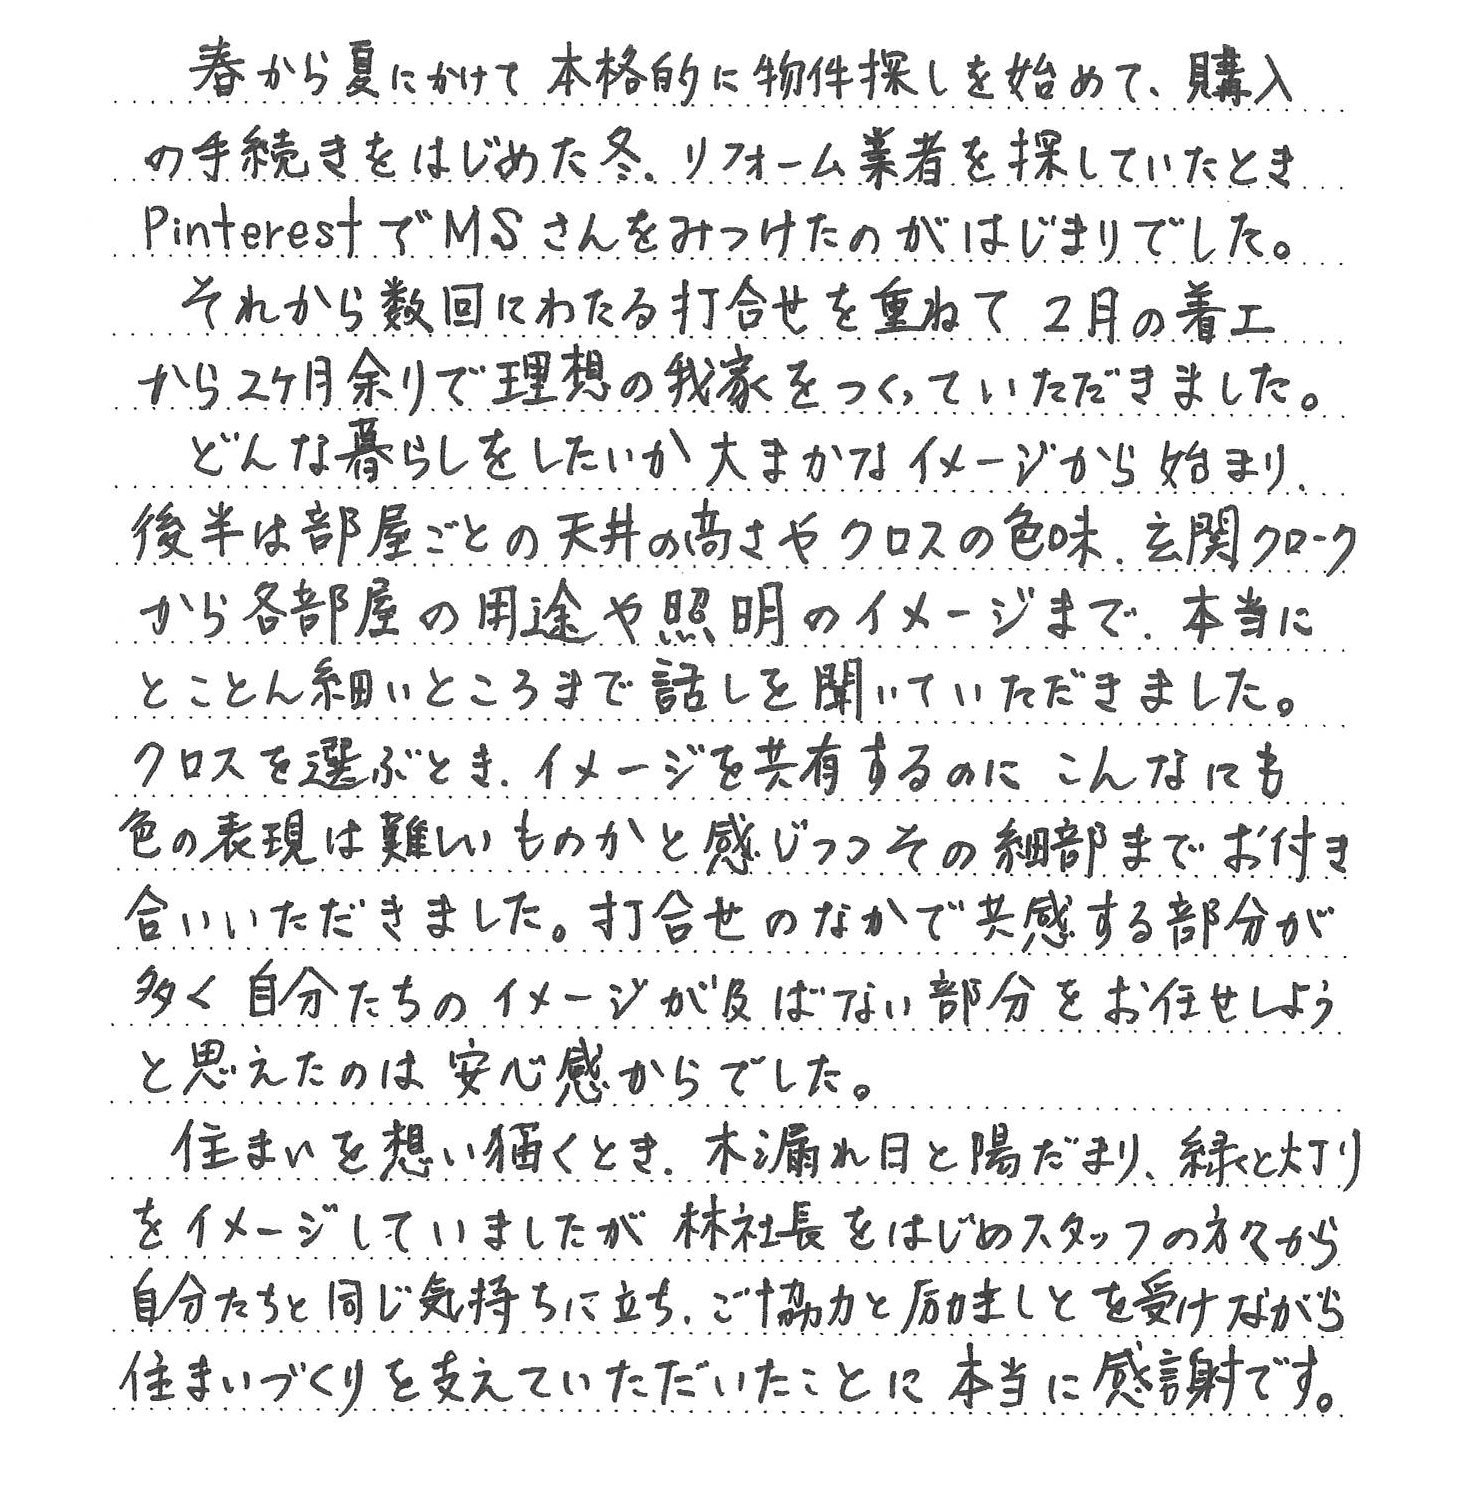 春から夏にかけて本格的に物件探しを始めて、購入
の手続きをはじめた冬、リフォーム業者を探していたとき
PinterestでMSさんをみつけたのがはじまりでした。
それから数回にわたる打合せを重ねて2月の着工
から2ヶ月余りで理想の我家をつくっていただきました。
どんな暮らしをしたいか大まかなイメージから始まり、
後半は部屋ごとの天井の高さやクロスの色味、玄関クローク
から各部屋の用途や照明のイメージまで、本当に
とことん細いところまで話しを聞いていただきました。
クロスを選ぶとき、イメージを共有するのにこんなにも
色の表現は難しいものかと感じつつその細部までお付き
合いいただきました。打合せのなかで共感する部分が
多く自分たちのイメージが及ばない部分をお任せしよう
と思えたのは安心感からでした。
住まいを想い描くとき、木漏れ日と陽だまり、緑と灯り
をイメージしていましたが林社長をはじめスタッフの方々から
自分たちと同じ気持ちに立ち、ご協力と励ましとを受けながら
住まいづくりを支えていただいたことに本当に感謝です。